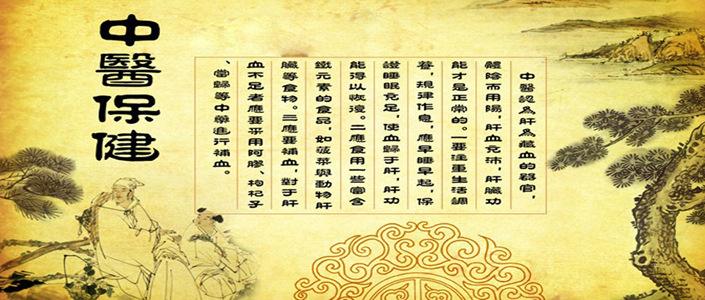 中醫保健
中醫認為肝為藏血的器官,
體陰而用陽,肝血充沛,肝臟功
能才是正常的。一要注重生活調
養,規律作息,應早睡早起,保
證睡眠充足,使血歸于肝,肝功
能得以恢復。二應食用一些富含
鐵元素的食品,如菠菜與動物肝
臟等食物。三應要補血,對于肝
血不足者應要采用阿膠、枸杞子
、當歸等中藥進行補血。